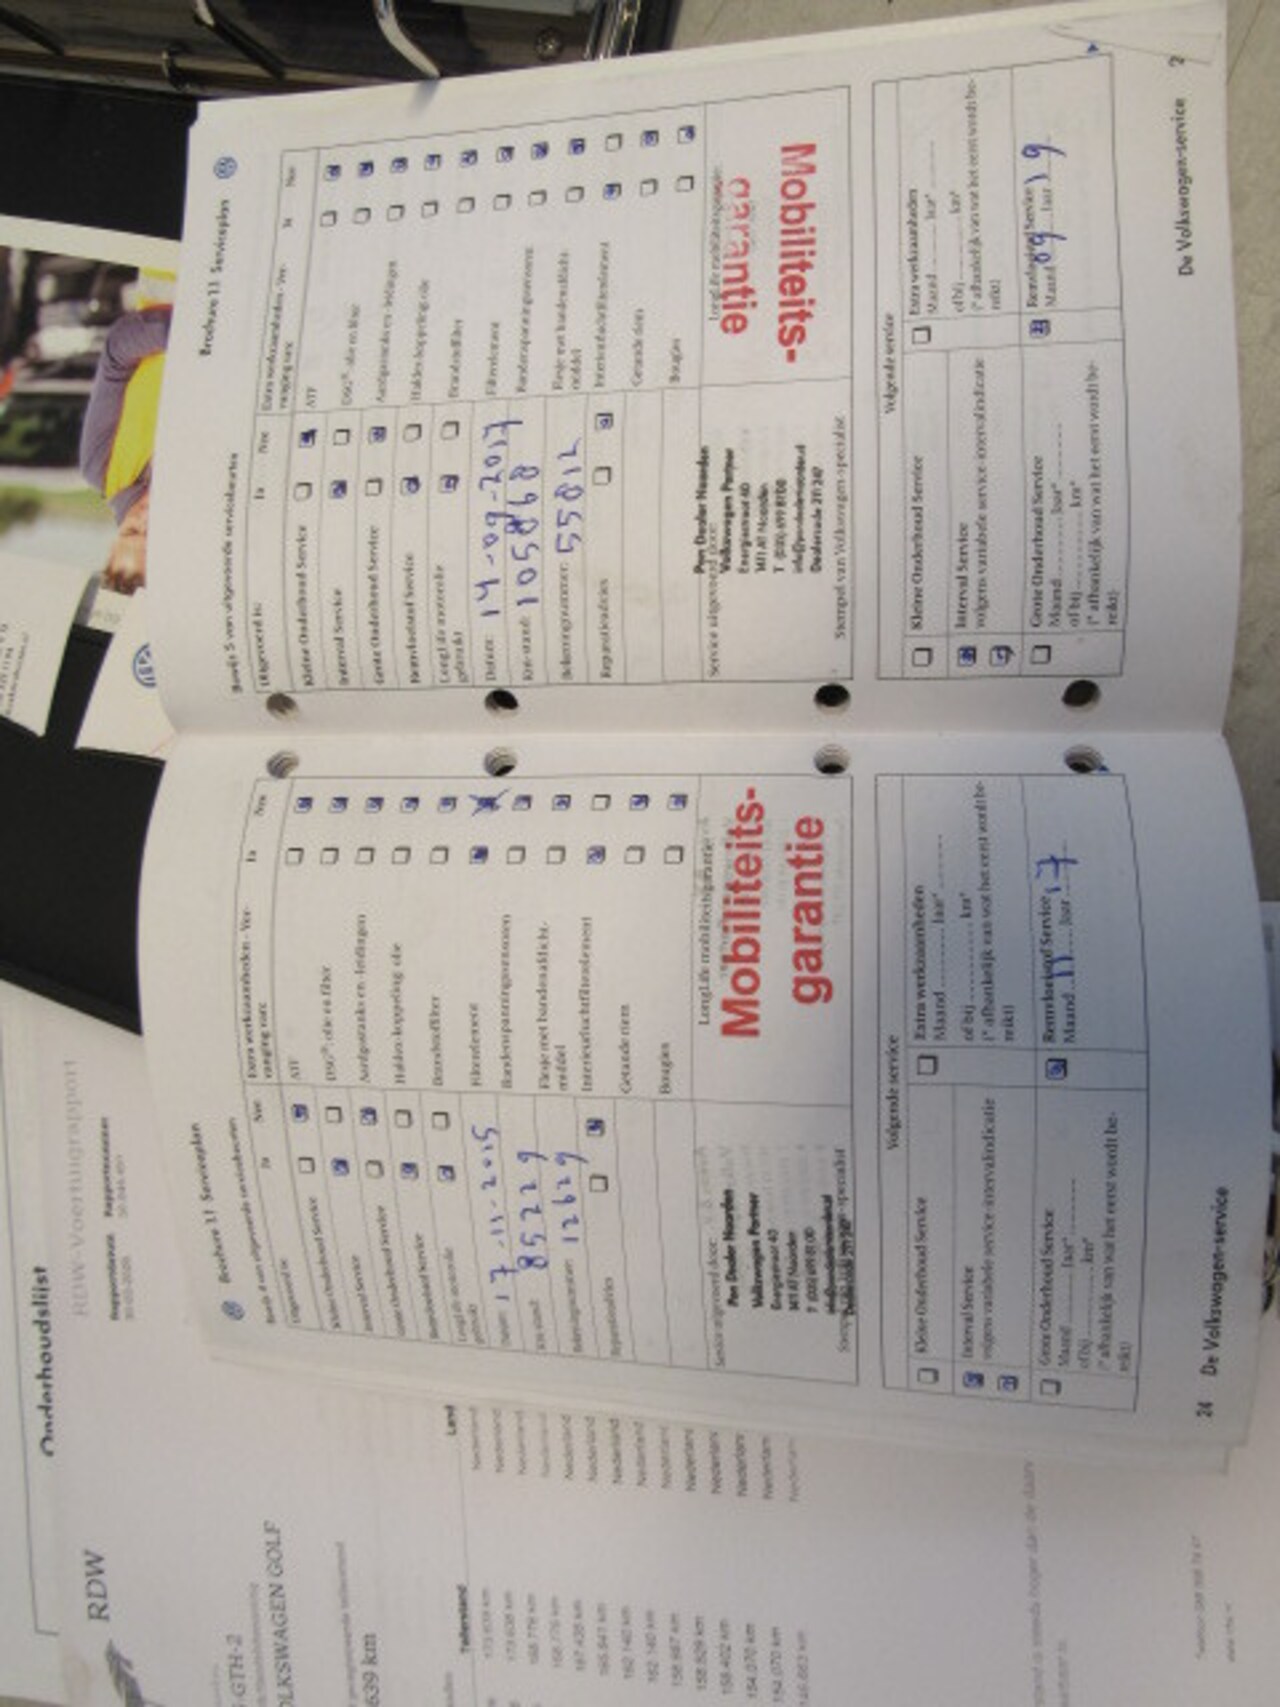 Onderhoudslijst
RDW
RDW-Voertuigrapport
Rapportdatum
Rapportnummer
GTH-2
OLKSWAGEN GOLF
639 km
Tellerstand
Land
173.639 km
Nederland
Nederland
Nederland
Nederland
Nederland
Nederland
Nederland
Nederland
Nederland
Nederland
Nederland
154.070 km
154.070 km
Brochure 1.1 Serviceplan
Uitgevoerd is:
Ja
Nee
Kleine Onderhoud Service
Interval Service
Grote Onderhoud Service
Remvloeistof Service
LongLife motorolie
gebruikt
Datum: 17-11-2015
Km-stand: 85229
Rekeningnummer: 12629
Reparatieadvies
Extra werkzaamheden - Ver-
vanging van:
Ja
Nee
ATF
DSG®-olie en filter
Aardgastanks en -leidingen
Haldex-koppeling-olie
Brandstoffilter
Filterelement
Bandenspanningssensoren
Flesje met bandenafdicht-
middel
Interieurluchtfilterelement
Getande riem
Bougies
Service uitgevoerd door:
Pon Dealer Naarden
Volkswagen Partner
Energiestraat 40
1411 AT Naarden
T (035) 699 81 00
LongLife mobiliteitsgarantie
Mobiliteits-
garantie
Volgende service
Kleine Onderhoud Service
Interval Service
volgens variabele service-intervalindicatie
Grote Onderhoud Service
Maand ........... Jaar* ...........
of bij ........... km*
(* afhankelijk van wat het eerst wordt be-
reikt)
Extra werkzaamheden
Maand ........... Jaar* ...........
of bij ........... km*
(* afhankelijk van wat het eerst wordt be-
reikt)
Remvloeistof Service
Maand 11 Jaar 17
24 De Volkswagen-service
Brochure 1.1 Serviceplan
Bewijs 5 van uitgevoerde servicebeurten
Uitgevoerd is:
Ja
Nee
Kleine Onderhoud Service
Interval Service
Grote Onderhoud Service
Remvloeistof Service
LongLife motorolie
gebruikt
Datum: 14-09-2017
Km-stand: 105868
Rekeningnummer: 55812
Reparatieadvies
Extra werkzaamheden - Ver-
vanging van:
Ja
Nee
ATF
DSG®-olie en filter
Aardgastanks en -leidingen
Haldex-koppeling-olie
Brandstoffilter
Filterelement
Bandenspanningssensoren
Flesje met bandenafdicht-
middel
Interieurluchtfilterelement
Getande riem
Bougies
Service uitgevoerd door:
Pon Dealer Naarden
Volkswagen Partner
Energiestraat 40
1411 AT Naarden
T (035) 699 81 00
Dealercode 211 247
Stempel van Volkswagen-specialist
LongLife mobiliteitsgarantie
garantie
Mobiliteits-
Volgende service
Kleine Onderhoud Service
Interval Service
volgens variabele service-intervalindicatie
Grote Onderhoud Service
Maand ........... Jaar* ...........
of bij ........... km*
(* afhankelijk van wat het eerst wordt be-
reikt)
Extra werkzaamheden
Maand ........... Jaar* ...........
of bij ........... km*
(* afhankelijk van wat het eerst wordt be-
reikt)
Remvloeistof Service
Maand 09 Jaar 19
De Volkswagen-service 2